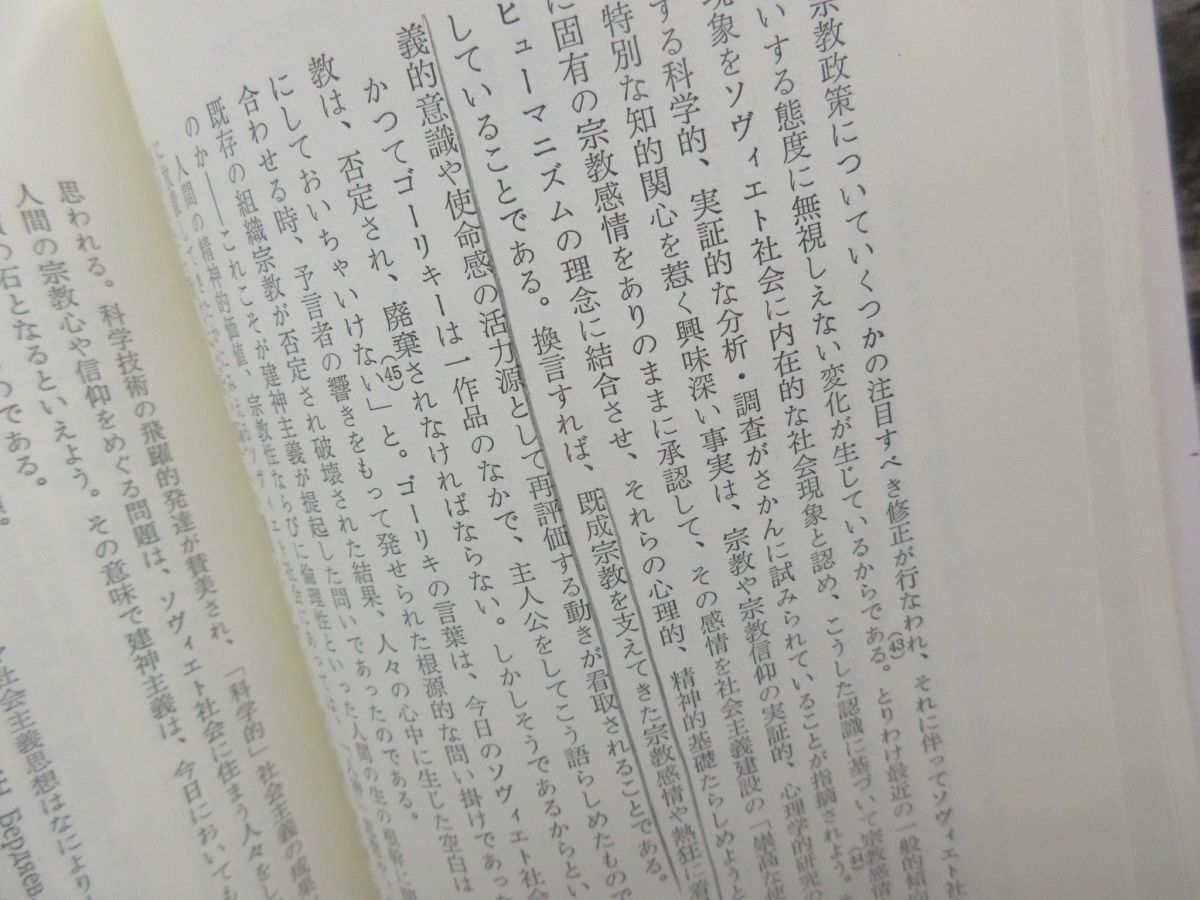 宗教政策についていくつかの注目すべき修正が行なわれ、それに伴ってソヴィエト社
いする態度に無視しえない変化が生じているからである。(43)とりわけ最近の一般的傾向
現象をソヴィエト社会に内在的な社会現象と認め、こうした認識に基づいて宗教感情
する科学的、実証的な分析・調査がさかんに試みられていることが指摘されよう。(44)
特別な知的関心を惹く興味深い事実は、宗教や宗教信仰の実証的、心理学的研究の
に固有の宗教感情をありのままに承認して、その感情を社会主義建設の「崇高な使
ヒューマニズムの理念に結合させ、それらの心理的、精神的基礎たらしめようと
していることである。換言すれば、既成宗教を支えてきた宗教感情や熱狂に着
義的意識や使命感の活力源として再評価する動きが看取されることである。
かつてゴーリキーは一作品のなかで、主人公をしてこう語らしめたもので
教は、否定され、廃棄されなければならない。しかしそうであるからとい
にしておいちゃいけない」(45)と。ゴーリキの言葉は、今日のソヴィエト社会
合わせる時、予言者の響きをもって発せられた根源的な問い掛けであった
既存の組織宗教が否定され破壊された結果、人々の心中に生した空白は
のか――これこそが建神主義が提起した問いであったのである。
人間の精神的価値、宗教性ならびに倫理性といった人間の生の根幹に
思われる。科学技術の飛躍的発達が賛美され、「科学的」社会主義の成果
人間の宗教心や信仰をめぐる問題は、ソヴィエト社会に住まう人々をし
の石となるといえよう。その意味で建神主義は、今日においても
のである。
社会主義思想はなにより
Бердяев